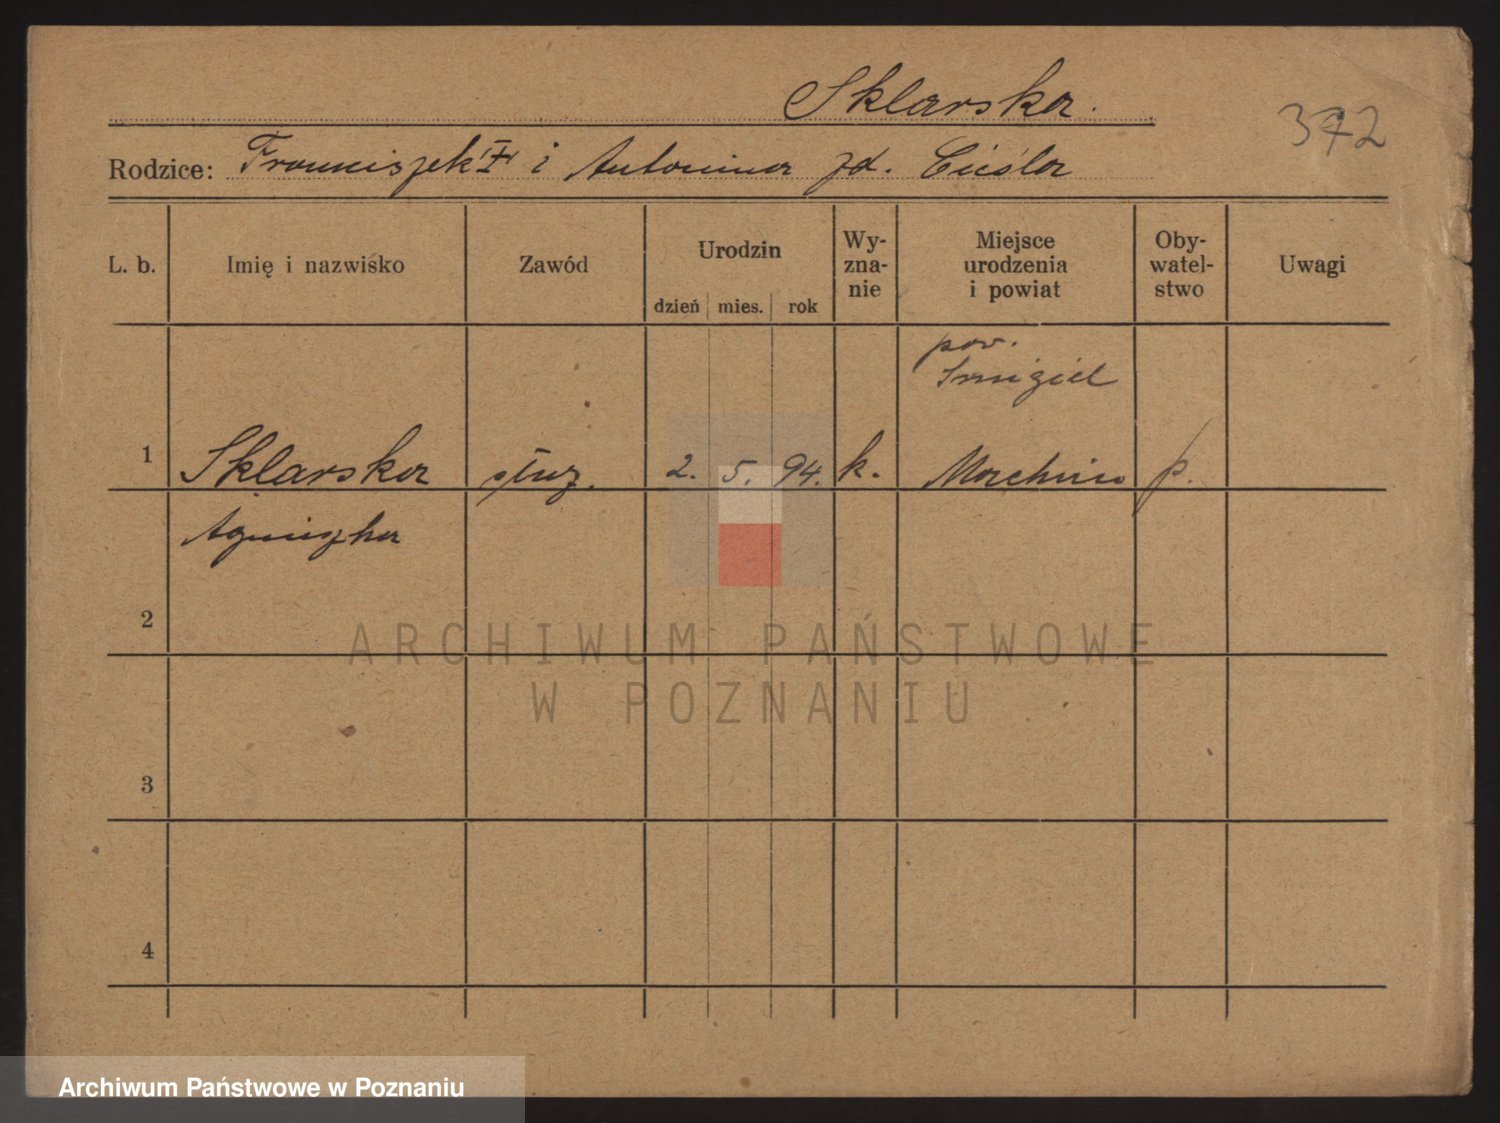 Sklarska.
372
Rodzice: Franciszek † i Antonina zd. Cieśla
L. b. Imię i nazwisko Zawód Urodzin dzień mies. rok Wy-zna-nie Miejsce urodzenia i powiat Oby-watel-stwo Uwagi
pow.
Śmigiel
1 Sklarska służ. 2. 5. 94. k. p.
Agnieszka
2
ARCHIWUM PAŃSTWOWE
W POZNANIU
3
4
Archiwum Państwowe w Poznaniu